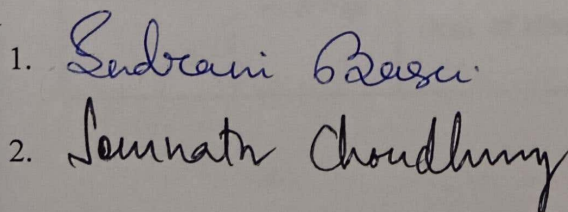 1. Indrani Basu.
2. Somnath Choudhury